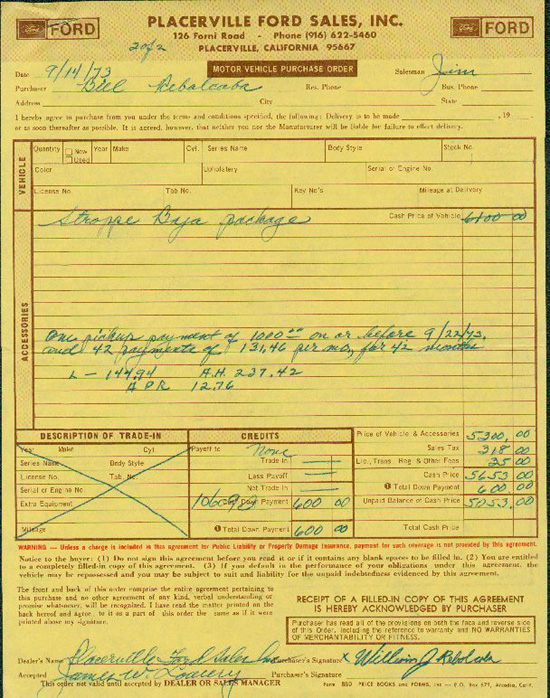 FORD
PLACERVILLE FORD SALES, INC.
FORD
126 Forni Road - Phone (916) 622-5460
PLACERVILLE, CALIFORNIA 95667
2 of 2
MOTOR VEHICLE PURCHASE ORDER
Date 9/14/73 Salesman Jim
Purchaser Bill Res. Phone Bus. Phone
Address City State
I hereby agree to purchase from you under the terms and conditions specified, the following: Delivery is to be made , 19
or as soon thereafter as possible. It is agreed, however, that neither you nor the Manufacturer will be liable for failure to effect delivery.
VEHICLE
Quantity New Used Year Make Cyl. Series Name Body Style Stock No.
Color Upholstery Serial or Engine No.
License No. Tab No. Key No's Mileage at Delivery
ACCESSORIES
Stroppe Baja package Cash Price of Vehicle 6100 00
One pickup payment of 1000.00 on or before 9/22/73,
and 42 payments of 131.46 per mo, for 42 months
L - 144.94 A.H. 237.42
APR 12.76
DESCRIPTION OF TRADE-IN CREDITS Price of Vehicle & Accessories 5300.00
Year Make Cyl. Payoff to None Sales Tax 318.00
Series Name Body Style Trade In Lic., Trans., Reg. & Other Fees 35 00
License No. Tab. No. Less Payoff Cash Price 5653 00
Serial or Engine No. Net Trade In Total Down Payment 600 00
Extra Equipment Payment 600 00 Unpaid Balance of Cash Price 5053.00
Mileage Total Down Payment 600 00 Total Cash Price
WARNING — Unless a charge is included in this agreement for Public Liability or Property Damage Insurance, payment for such coverage is not provided by this agreement.
Notice to the buyer: (1) Do not sign this agreement before you read it or if it contains any blank spaces to be filled in. (2) You are entitled
to a completely filled-in copy of this agreement. (3) If you default in the performance of your obligations under this agreement, the
vehicle may be repossessed and you may be subject to suit and liability for the unpaid indebtedness evidenced by this agreement.
The front and back of this order comprise the entire agreement pertaining to
this purchase and no other agreement of any kind, verbal understanding or
promise whatsoever, will be recognized. I have read the matter printed on the
back hereof and agree to it as a part of this order the same as if it were
printed above my signature.
RECEIPT OF A FILLED-IN COPY OF THIS AGREEMENT
IS HEREBY ACKNOWLEDGED BY PURCHASER
Purchaser has read all of the provisions on both the face and reverse
side of this Order, including the reference to warranty and NO WARRANTIES
OF MERCHANTABILITY OR FITNESS.
Dealer's Name Placerville Ford Sales Inc Purchaser's Signature x William J
Accepted James W. Purchaser's Signature
This order not valid until accepted by DEALER OR SALES MANAGER